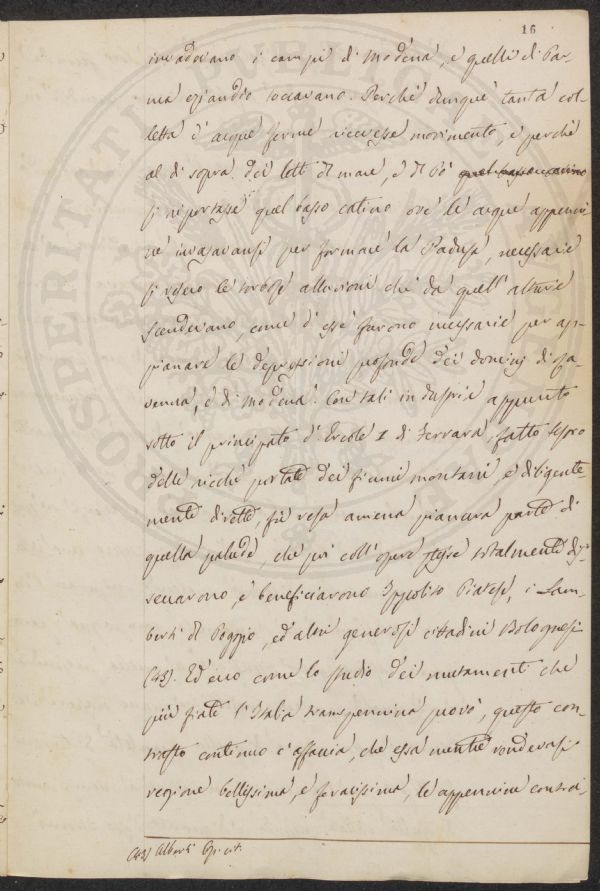 16
invadevano i campi di Modena, e quelli di Par-
ma eziandio toccavano. Perchè dunque tanta col-
letta d'acque ferme ricevesse movimento, e perchè
al di sopra dei letti di mare, e di Pò quel basso catino
si riportasse quel basso catino ove le acque appenni-
ne invasavansi per formare la Padusa, necessarie
si resero le torbose alluvioni che da quell'alture
scendevano, come d'esse furono necessarie per ap-
pianare le depressioni profonde dei domini di Ra-
venna, e di Modena. Con tali industrie appunto
sotto il principato d'Ercole I di Ferrara, fatto tesoro
delle ricche portate dei fiumi montani, e diligente-
mente dirette, fù resa amena pianura parte di
quella palude, che poi coll'opere stesse totalmente dis-
seccarono, e beneficiarono Ippolito Piatesi, i Lam-
berti di Poggio, ed altri generosi cittadini Bolognesi
(43). Ed ecco come lo studio dei mutamenti che
più fiate l'Italia transpennina provò, questo con-
trasto continuo c'affaccia, che essa mentre rendevasi
regione bellissima, e feracissima, le appennine contra-
(43) Alberti Op. cit.
PROSPERITATI PUBLICAE